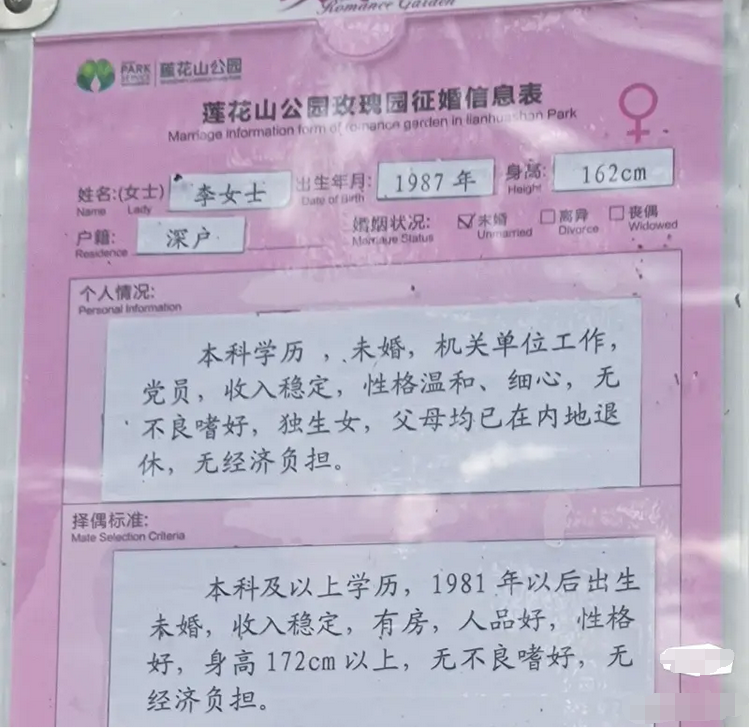 Romance Garden
PARK SERVICE 莲花山公园
莲花山公园玫瑰园征婚信息表
Marriage information form of romance garden in lianhuashan Park
姓名:(女士) 李女士 出生年月: 1987 年 身高: 162cm
Name Lady Date of Birth Height
户籍: 深户 婚姻状况: ☑未婚 □离异 □丧偶
Residence Marriage Status Unmarried Divorce Widowed
个人情况:
Personal Information
本科学历 ，未婚，机关单位工作，
党员，收入稳定，性格温和、细心，无
不良嗜好，独生女，父母均已在内地退
休，无经济负担。
择偶标准:
Mate Selection Criteria
本科及以上学历，1981 年以后出生
未婚，收入稳定，有房，人品好，性格
好，身高 172cm 以上，无不良嗜好，无
经济负担。